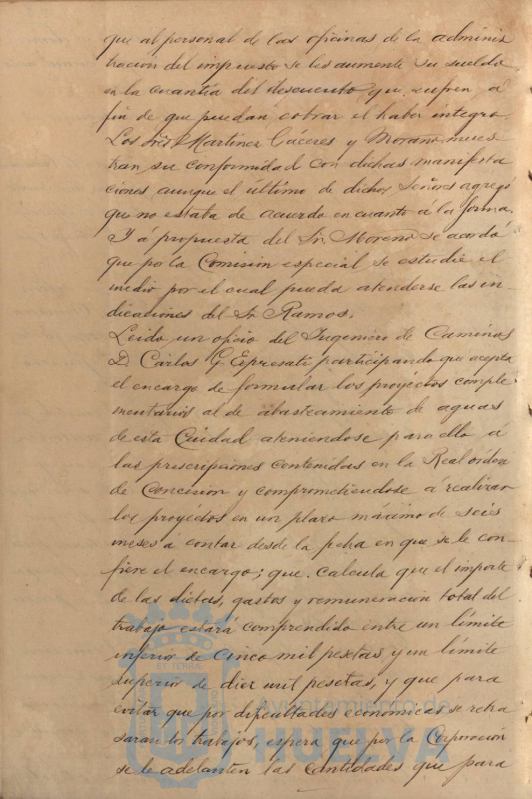 que al personal de las oficinas de la adminis
tracion del impuesto se les aumente su sueldo
en la cuantia del descuento que sufren á
fin de que puedan cobrar el haber integro.
Los Sres Martinez Cáceres y Moreno mues
tran su conformidad con dichas manifesta
ciones aunque el último de dichos Señores agregó
que no estaba de acuerdo en cuanto á la forma.
Y á propuesta del Sr. Moreno se acordó
que por la Comisión especial se estudie el
medio por el cual pueda atenderse las in-
dicaciones del Sr Ramos.
Leido un oficio del Ingeniero de Caminos
D. Carlos G. participando que acepta
el encargo de formular los proyectos comple
mentarios al de abastecimiento de aguas
de esta Ciudad ateniendose para ello á
las prescripciones contenidas en la Real orden
de Concesion y comprometiendose á realizar
los proyectos en un plazo máximo de seis
meses á contar desde la fecha en que se le con-
fiere el encargo; que calcula que el importe
de las dietas, gastos y remuneracion total del
trabajo estará comprendido entre un límite
inferior de cinco mil pesetas y un límite
superior de diez mil pesetas, y que para
evitar que por dificultades economicas se retra
saran los trabajos, espera que por la Corporacion
se le adelanten las cantidades que para
ET TERRÆ
Ayuntamiento de
HUELVA